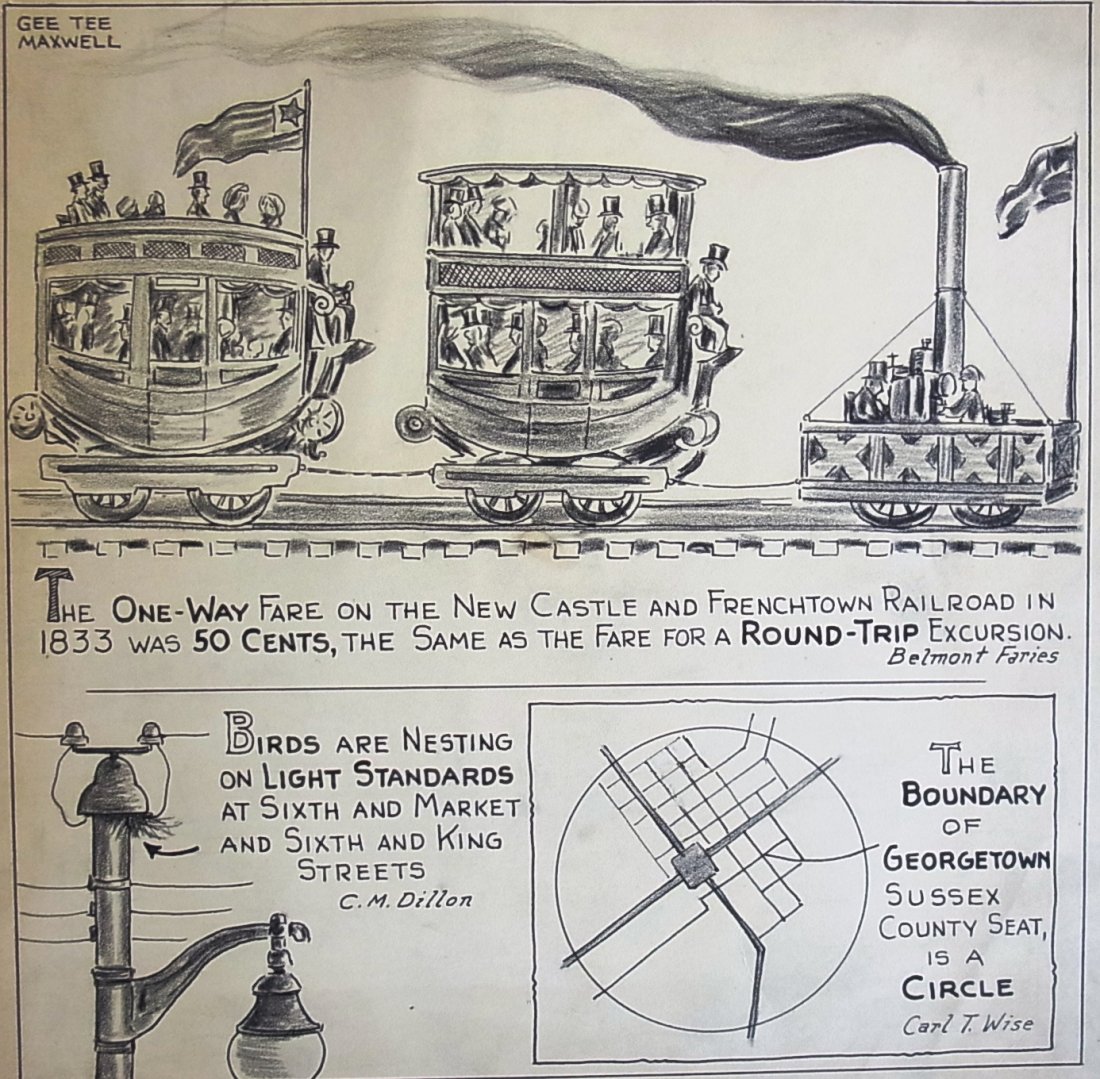 GEE TEE
MAXWELL
THE ONE-WAY FARE ON THE NEW CASTLE AND FRENCHTOWN RAILROAD IN
1833 WAS 50 CENTS, THE SAME AS THE FARE FOR A ROUND-TRIP EXCURSION.
Belmont Faries
BIRDS ARE NESTING
ON LIGHT STANDARDS
AT SIXTH AND MARKET
AND SIXTH AND KING
STREETS
C. M. Dillon
THE
BOUNDARY
OF
GEORGETOWN
SUSSEX
COUNTY SEAT,
IS A
CIRCLE
Carl T. Wise